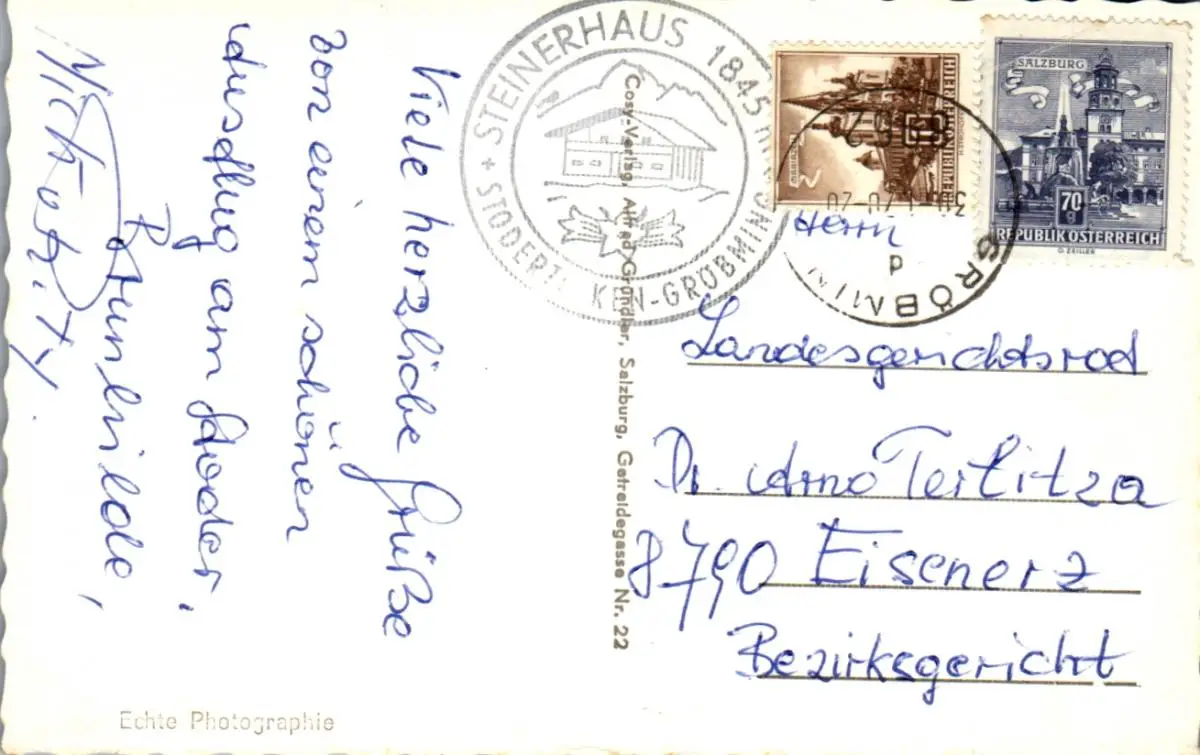 Viele herzliche Grüße
von einem schönen
Ausflug am Stoder,
Rotunhilde,
STEINERHAUS 1845 m
STODERZINKEN-GRÖBMING
Cosy-Verlag, Alfred Gründler, Salzburg, Getreidegasse Nr. 22
SALZBURG
70 g
REPUBLIK ÖSTERREICH
REPUBLIK ÖSTERREICH
GRÖBMING
Herrn
Landesgerichtsrad
Dr. Arno Terlitza
8790 Eisenerz
Bezirksgericht
Echte Photographie